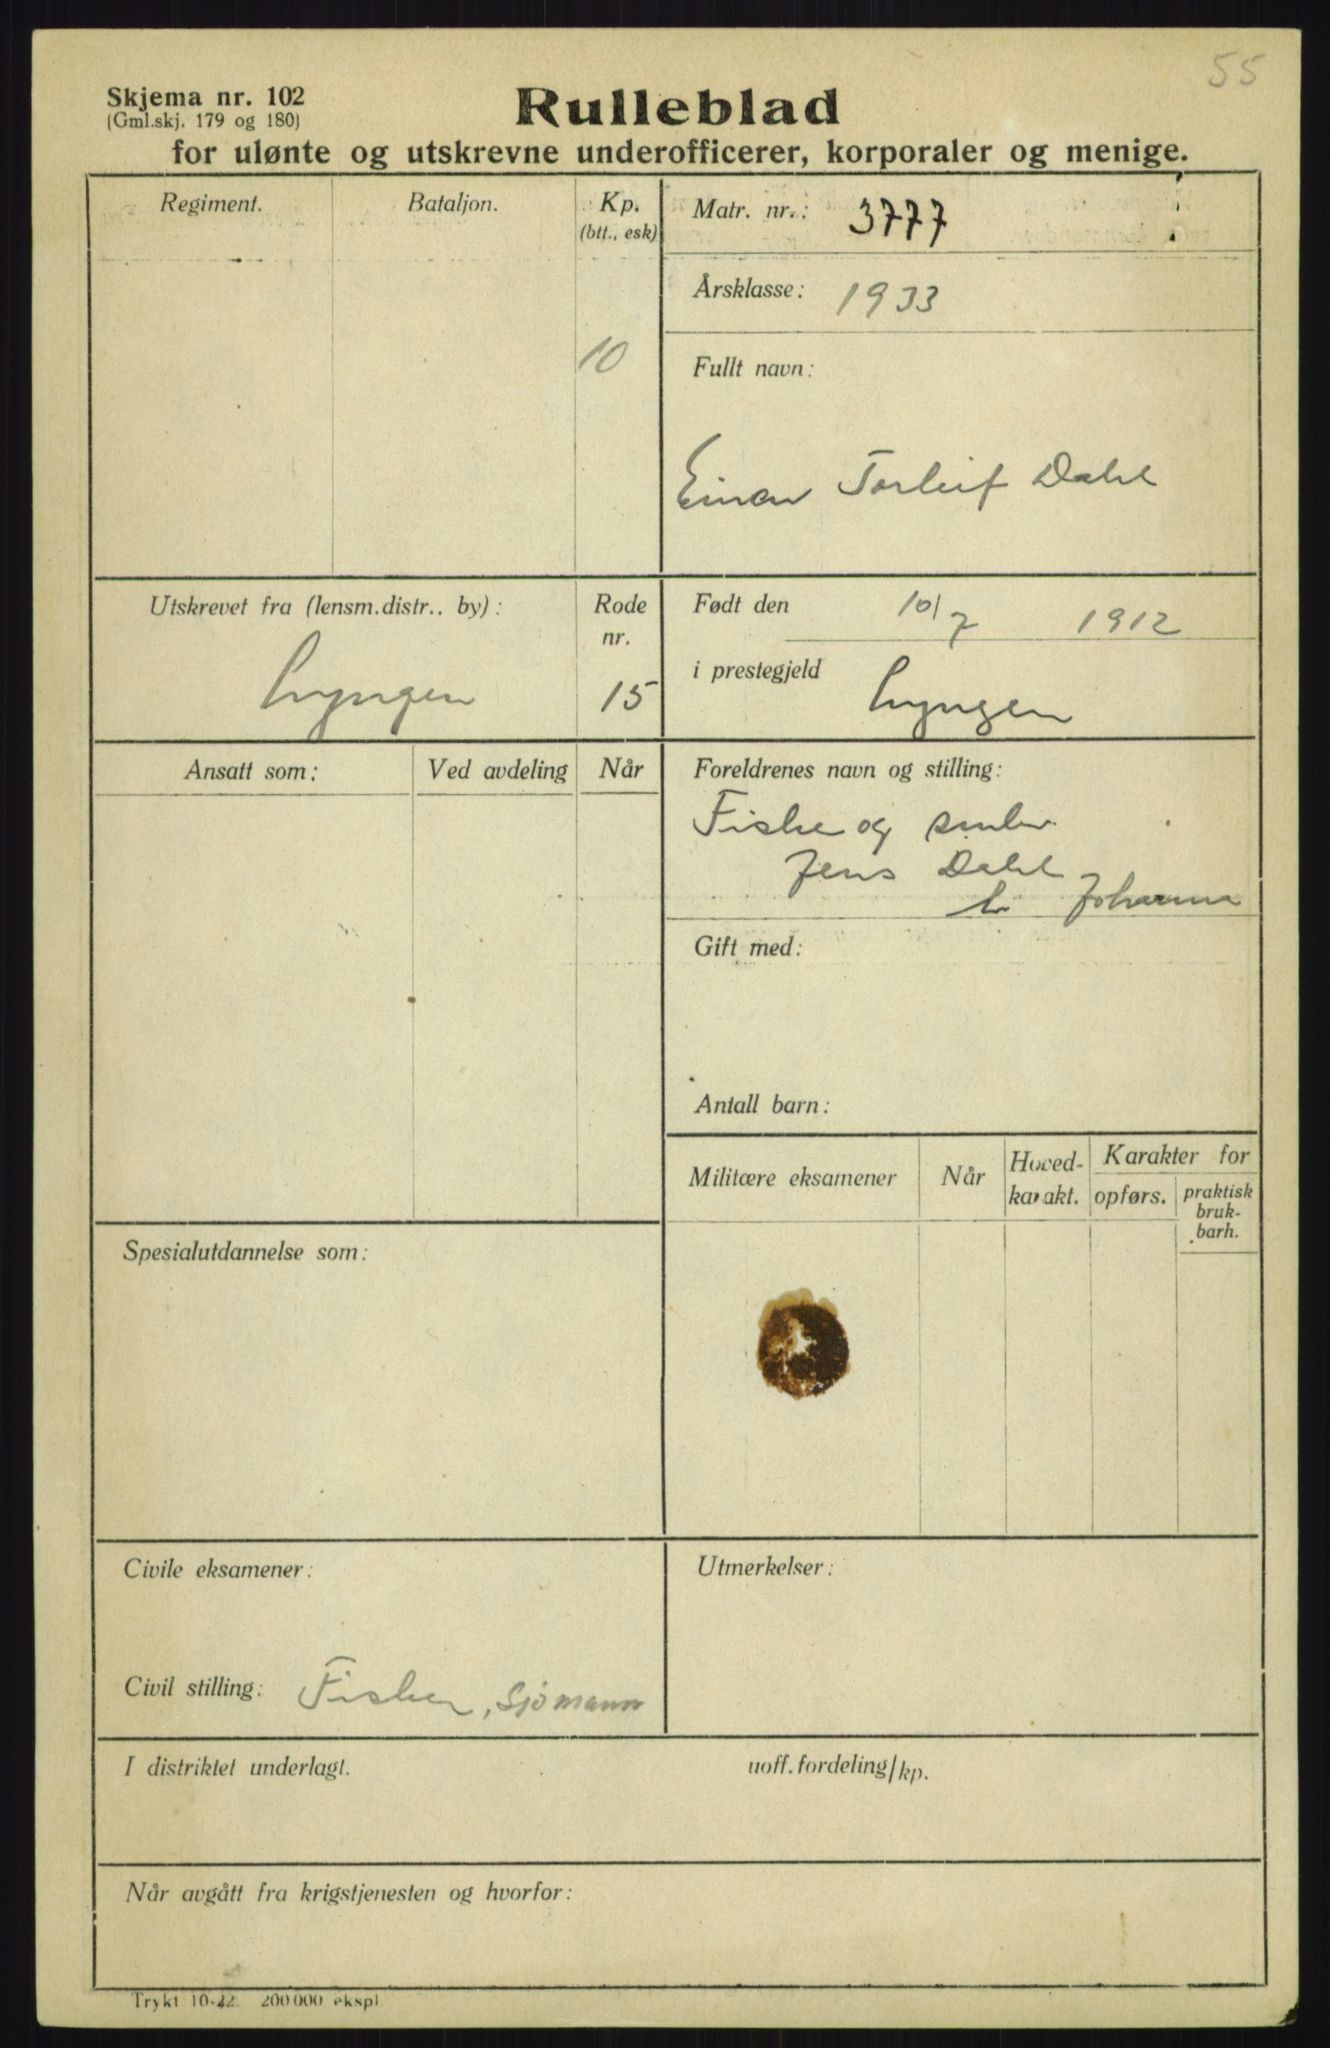 55
Skjema nr. 102
(Gml.skj. 179 og 180)
Rulleblad
for ulønte og utskrevne underofficerer, korporaler og menige.
Regiment. Bataljon. Kp.
(btt., esk)
10
Matr. nr.: 3777
Årsklasse: 1933
Fullt navn:
Einar Torleif Dahl
Utskrevet fra (lensm.distr.. by): Rode
nr.
Lyngen 15
Født den 10/7 1912
i prestegjeld Lyngen
Ansatt som: Ved avdeling Når
Foreldrenes navn og stilling:
Fisker og
Jens Dahl
Johanna
Gift med:
Antall barn:
Militære eksamener Når Hoved-
karakt. Karakter for
opførs. praktisk
bruk-
barh.
Spesialutdannelse som:
Civile eksamener:
Civil stilling: Fisker, Sjømann
Utmerkelser:
I distriktet underlagt. uoff. fordeling/kp.
Når avgått fra krigstjenesten og hvorfor:
Trykt 10-32. 200000 ekspl.